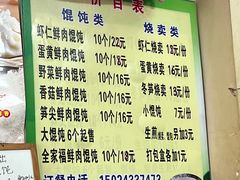 价目表
馄饨类 烧卖类
虾仁鲜肉馄饨 10个/22元 虾仁烧卖 13元/份
蛋黄鲜肉馄饨 10个/18元 蛋黄烧卖 16元/份
野菜鲜肉馄饨 10个/16元 冬笋烧卖 13元/份
香菇鲜肉馄饨 10个/16元 小馄饨 7元/份
笋尖鲜肉馄饨 10个/16元 生煎 另加3元
大馄饨 6个起售 打包盒各加1元
全家福鲜肉馄饨 10个/19元
订餐电话 15024337473